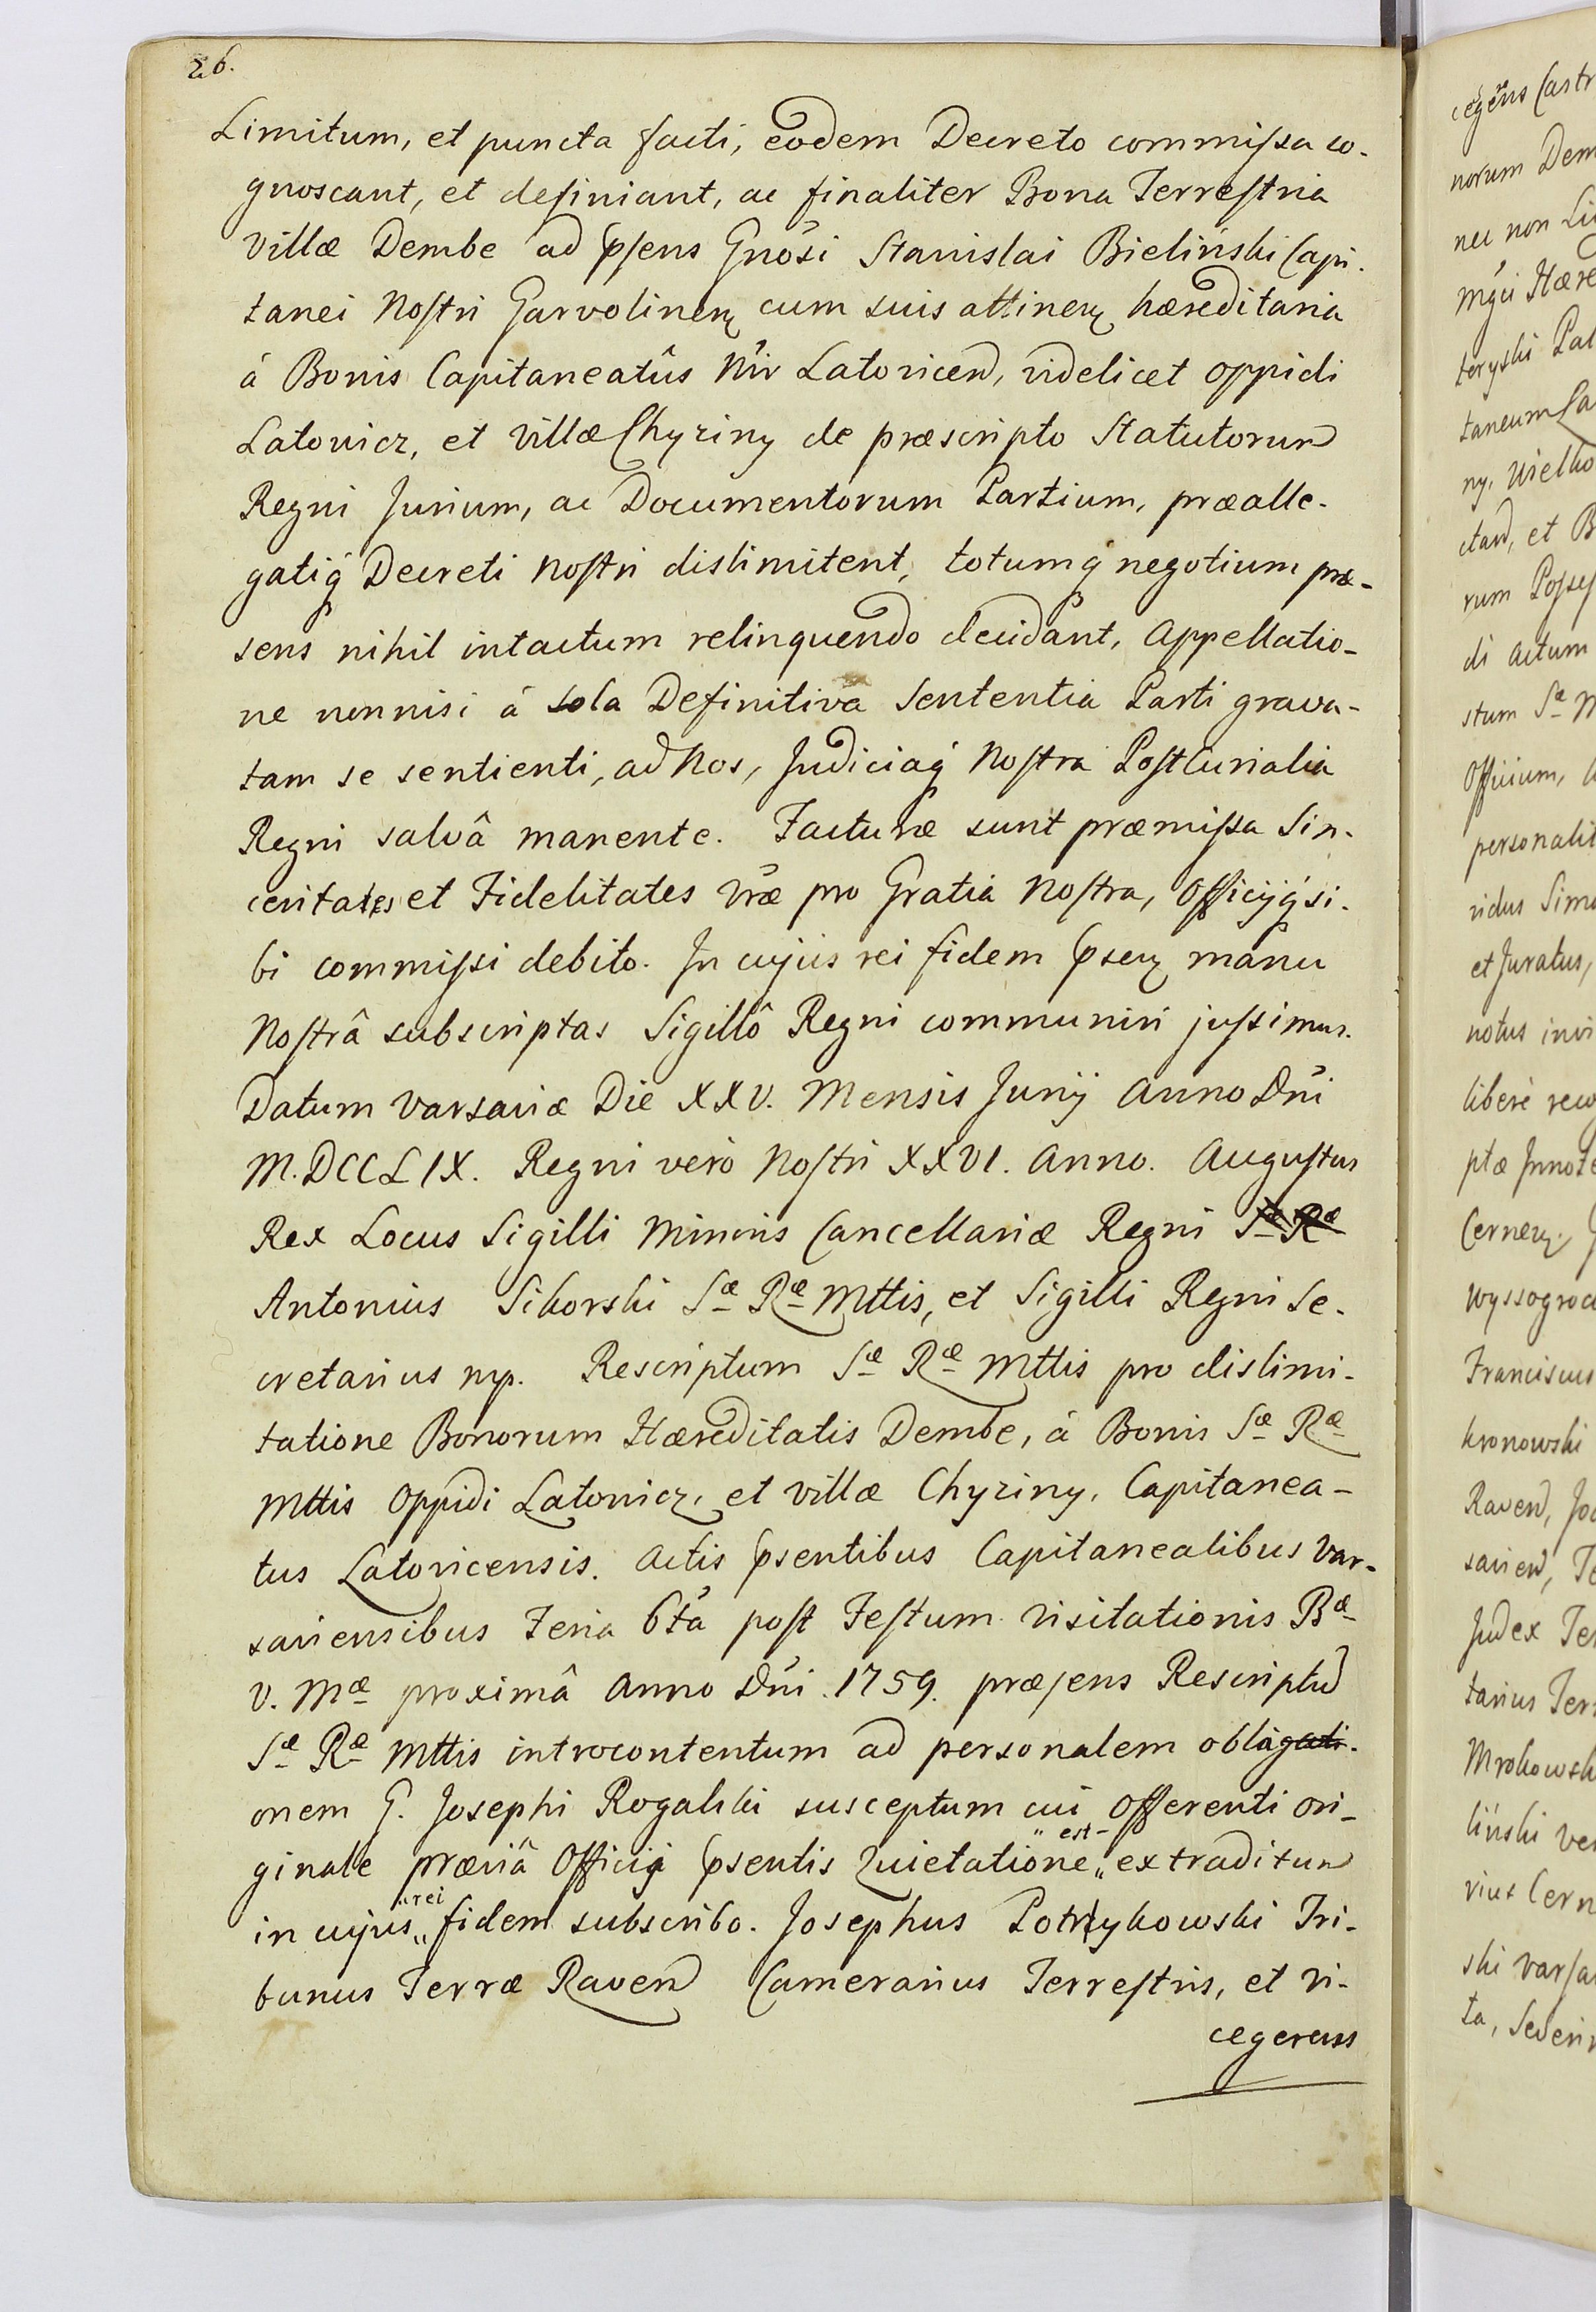 26.
Limitum, et puncta facti, eodem Decreto commiſsa co-
gnoscant, et definiant, ac finaliter Bona Terreſtria
Villæ Dembe ad pſens Gnosi Stanislai Bieliński Capi-
tanei Noſtri Garvolinen cum suis attinen hæreditaria
á Bonis Capitaneatûs Nri Latovicen, videlicet Oppidi
Latovicz, et Villæ Chyziny de præscripto Statutorum
Regni Jurium, ac Documentorum Partium, præalle-
gatiq Decreti Noſtri dislimitent, totumq negotium præ-
sens nihil intactum relinquendo decidant, Appellatio-
ne nonnisi á sola Definitiva Sententia Parti grava-
tam se sentienti, ad Nos, Judiciaq Noſtra Poſtcurialia
Regni salvâ manente. Facturæ sunt præmiſsa Sin-
ceritates et Fidelitates Vræ pro Gratia Noſtra, Officijq si-
bi commiſsi debito. In cujus rei fidem pſen manu
Noſtrâ subscriptas Sigillô Regni communiri juſsimus.
Datum Varsaviæ Die XXV. Mensis Junij Anno Dni
M.DCCLIX. Regni verò Noſtri XXVI. Anno. Auguſtus
Rex Locus Sigilli Minoris Cancellariæ Regni Sæ Ræ
Antonius Sikorski Sæ Ræ Mttis, et Sigilli Regni Se-
cretarius mp. Rescriptum Sæ Ræ Mttis pro dislimi-
tatione Bonorum Hæreditatis Dembe, á Bonis Sæ Ræ
Mttis Oppidi Latovicz, et Villæ Chyziny, Capitanea-
tus Latovicensis. Actis pſentibus Capitanealibus Var-
saviensibus Feria 6ta poſt Feſtum Visitationis Bæ
V. Mæ proximâ Anno Dni 1759. præſens Rescriptum
Sæ Ræ Mttis introcontentum ad personalem obligati-
onem G. Josephi Rogalski susceptum cui Offerenti ori-
ginale præviâ Officij pſentis Quietatione „ est extraditum
in cujus „ rei fidem subscribo. Josephus Potrykowski Tri-
bunus Terræ Raven Camerarius Terreſtris, et Vi-
cegerens
cegens Castr
norum Dem
nec non Li
mgci Hære
teryski Pal
taneum Ca
ny, Wielko
ctan, et B
rum Poſseſ
di Actum
stum Sæ M
Officium,
personalit
vidus Simo
et Juratus,
notus invi
liberè reco
ptæ Innote
Cernen
Wyssogrod
Franciscus
kronowski
Raven, Jo
savien, Te
Judex Ter
tarius Terr
Mrokowsk
liński ver
rius Cern
ski Varſa
ta, Severin